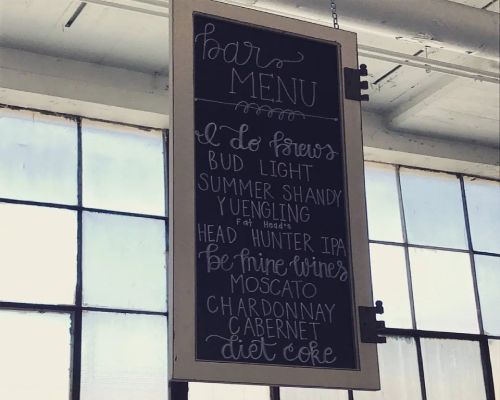 bar
MENU
I do brews
BUD LIGHT
SUMMER SHANDY
YUENGLING
Fat Head's
HEAD HUNTER IPA
be mine wines
MOSCATO
CHARDONNAY
CABERNET
diet coke